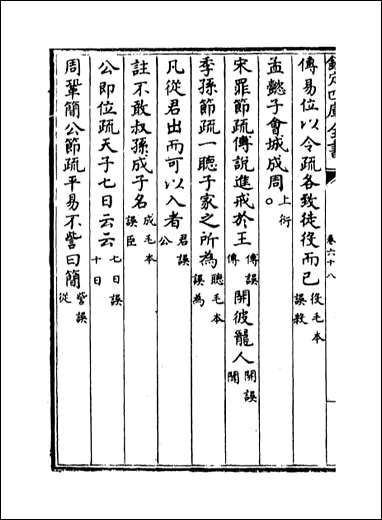 欽定四庫全書
卷六十八
傳易位以令疏各致徒役而已役毛本誤殺
孟懿子會城成周。上衍
宋罪節疏傳說進戒於王傳誤傅開彼龍人開誤關
季孫節疏一聽子家之所為聽毛本誤為
凡從君出而可以入者君誤公
註不敢叔孫成子名成毛本誤臣
公即位疏天子七日云云七日誤十日
周鞏簡公節疏平易不訾曰簡訾誤從